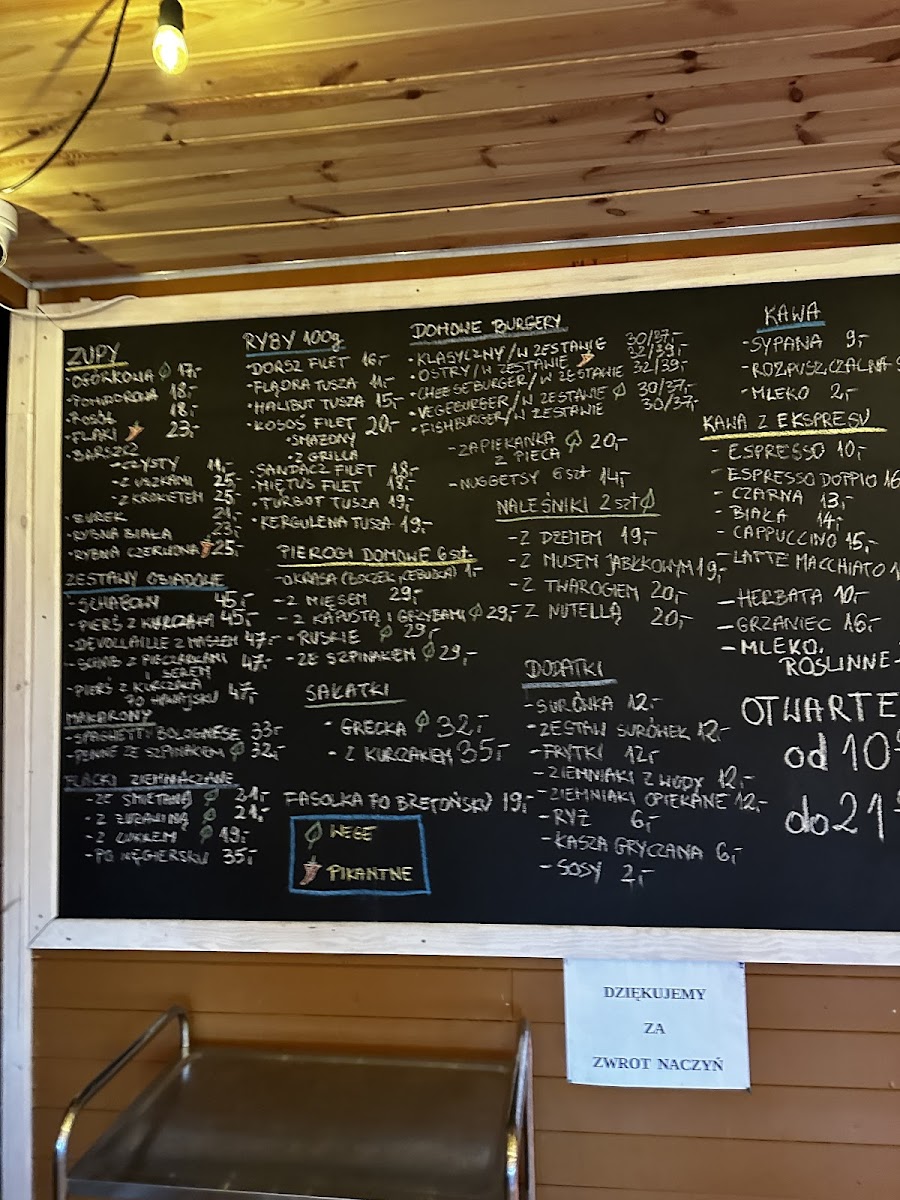 ZUPY
- OGÓRKOWA 17,-
- POMIDOROWA 18,-
- ROSÓŁ 18,-
- FLAKI 23,-
- BARSZCZ
- CZYSTY 11,-
- Z USZKAMI 25,-
- Z KROKIETEM 25,-
- ŻUREK 21,-
- RYBNA BIAŁA 23,-
- RYBNA CZERWONA 25,-
ZESTAWY OBIADOWE
- SCHABOWY 45,-
- PIERŚ Z KURCZAKA 45,-
- DEVOLLAILLE Z MASŁEM 47,-
- SCHAB Z PIECZARKAMI
I SEREM 47,-
- PIERŚ Z KURCZAKA
PO HAWAJSKU 47,-
MAKARONY
- SPAGHETTI BOLOGNESE 33,-
- PENNE ZE SZPINAKIEM 32,-
PLACKI ZIEMNIACZANE
- ZE ŚMIETANĄ 21,-
- Z ŻURAWINĄ 21,-
- Z CUKREM 19,-
- PO WĘGIERSKU 35,-
RYBY 100g
- DORSZ FILET 16,-
- FLĄDRA TUSZA 11,-
- HALIBUT TUSZA 15,-
- ŁOSOŚ FILET 20,-
- SMAŻONY
- Z GRILLA
- SANDACZ FILET 18,-
- MIĘTUS FILET 18,-
- TURBOT TUSZA 19,-
- KERGULENA TUSZA 19,-
PIEROGI DOMOWE 6szt.
- OKRASA (BOCZEK, CEBULKA) 1,-
- Z MIĘSEM 29,-
- Z KAPUSTĄ I GRZYBAMI 29,-
- RUSKIE 29,-
- ZE SZPINAKIEM 29,-
SAŁATKI
- GRECKA 32,-
- Z KURCZAKIEM 35,-
FASOLKA PO BRETOŃSKU 19,-
WEGE
PIKANTNE
DOMOWE BURGERY
- KLASYCZNY/W ZESTAWIE 30/37,-
- OSTRY/W ZESTAWIE 32/39,-
- CHEESEBURGER/W ZESTAWIE 32/39,-
- VEGEBURGER/W ZESTAWIE 30/37,-
- FISHBURGER/W ZESTAWIE 30/37,-
- ZAPIEKANKA 20,-
Z PIECA
- NUGGETSY 6szt 14,-
NALEŚNIKI 2szt
- Z DŻEMEM 19,-
- Z MUSEM JABŁKOWYM 19,-
- Z TWAROGIEM 20,-
- Z NUTELLĄ 20,-
DODATKI
- SURÓWKA 12,-
- ZESTAW SURÓWEK 12,-
- FRYTKI 12,-
- ZIEMNIAKI Z WODY 12,-
- ZIEMNIAKI OPIEKANE 12,-
- RYŻ 6,-
- KASZA GRYCZANA 6,-
- SOSY 2,-
KAWA
- SYPANA 9,-
- ROZPUSZCZALNA
- MLEKO 2,-
KAWA Z EKSPRESU
- ESPRESSO 10,-
- ESPRESSO DOPPIO 16
- CZARNA 13,-
- BIAŁA 14,-
- CAPPUCCINO 15,-
- LATTE MACCHIATO
- HERBATA 10,-
- GRZANIEC 16,-
- MLEKO
ROŚLINNE
OTWARTE
od 10
do 21
DZIĘKUJEMY
ZA
ZWROT NACZYŃ